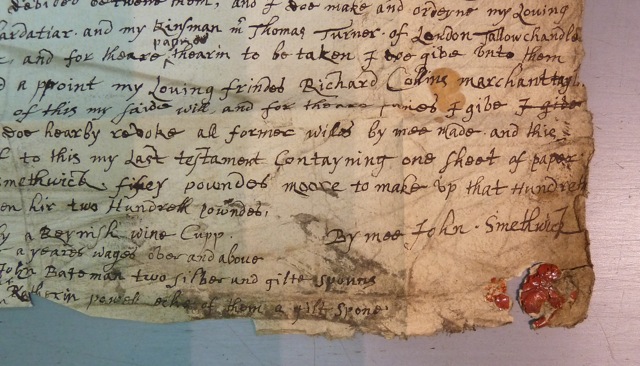 devided betweene them, and I doe make and ordeyne my Loving
and my Kinsman mr Thomas Turner of London Tallow chandle
paines
and for theare thearin to be taken I doe give unto them
a point my Loving frindes Richard Collins marchanttayl
of this my saide will and for theare paines I give I give
doe hearby revoke all former willes by mee made and this
to this my Last testament Contayning one sheet of paper
Smethwick fifty powndes moore to make up that Hundreth
hir two Hundreth powndes,
a Reynish wine Cupp. By mee John Smethwick
a yeares wages over and above
John Bateman two silver and gilte spouns
Katherin powell eche of them a gilt spone